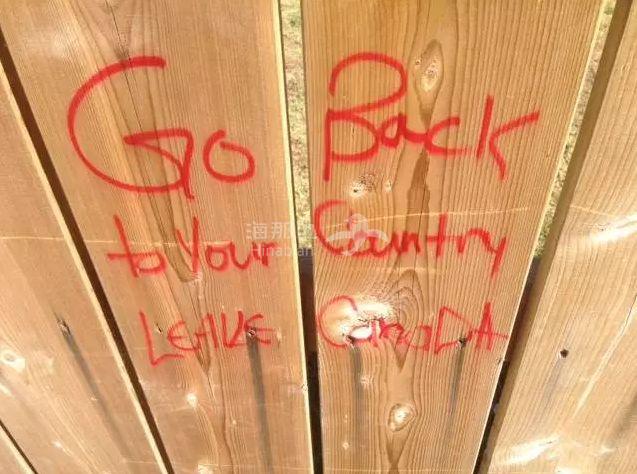 Go Back
to Your Cuntry
LEAVE CanaDA
海那
Hinabian